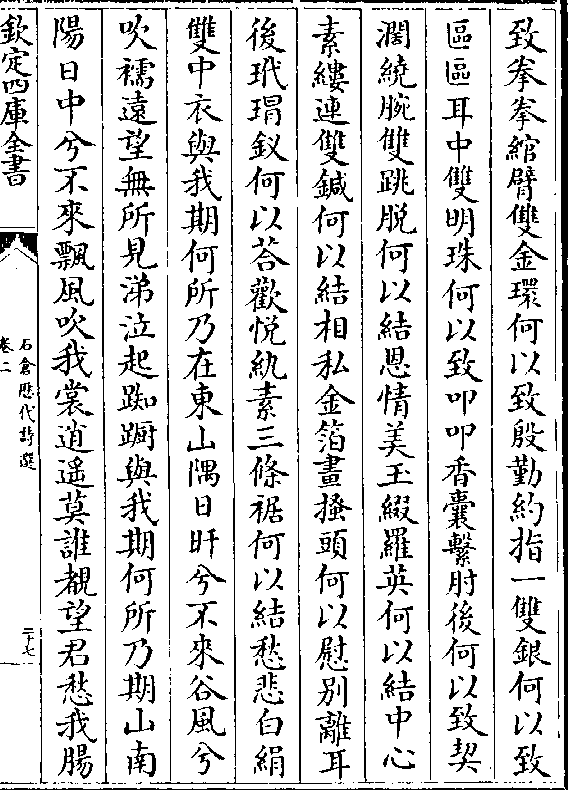 致拳拳綰臂雙金環何以致殷勤約指一雙銀何以致
區區耳中雙明珠何以致叩叩香囊繫肘後何以致契
濶繞腕雙跳脱何以結恩情美玉綴羅英何以結中心
素縷連雙鍼何以結相私金箔畫搔頭何以慰别離耳
後玳瑁釵何以荅歡悦紈素三條裾何以結愁悲白絹
雙中衣與我期何所乃在東山隅日旰兮不來谷風兮
吹襦遠望無所見涕泣起踟蹰與我期何所乃期山南
陽日中兮不來飄風吹我裳逍遥莫誰覩望君愁我腸
欽定四庫全書
石倉歴代詩選
卷二
二十七